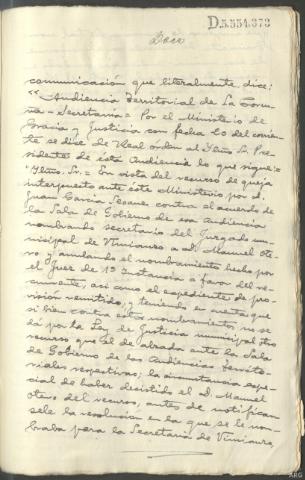 D.5.554.373
Doce
comunicación que literalmente, dice:
"Audiencia Territorial de La Coru-
ña = Secretaría = Por el Ministerio de
Gracia y Justicia con fecha 20 del corrien-
te se dice de Real orden al Yltmo Sr. Pre-
sidente de esta Audiencia lo que sigue =
"Yltmo. Sr. = En vista del recurso de queja
interpuesto ante éste Ministerio por D.
Juan García Seoane contra el acuerdo de
la Sala de Gobierno de esa Audiencia
nombrando secretario del Juzgado mu-
nicipal de Vimianzo a D. Manuel Ote-
ro y anulando el nombramiento hecho por
el Juez de 1ª Instancia a favor del re-
currente, así como el expediente de pro-
visión remitido, y teniendo en cuenta que
si bien contra estos nombramientos no se
dá por la Ley de Justicia municipal otro
recurso que el de alzada ante la Sala
de Gobierno de las Audiencias Territo-
riales respectivas, la circunstancia espe-
cial de haber desistido el D. Manuel
Otero del recurso, antes de notificar-
sele la resolución en la que se le nom-
braba para la Secretaría de Vimianzo
ARG